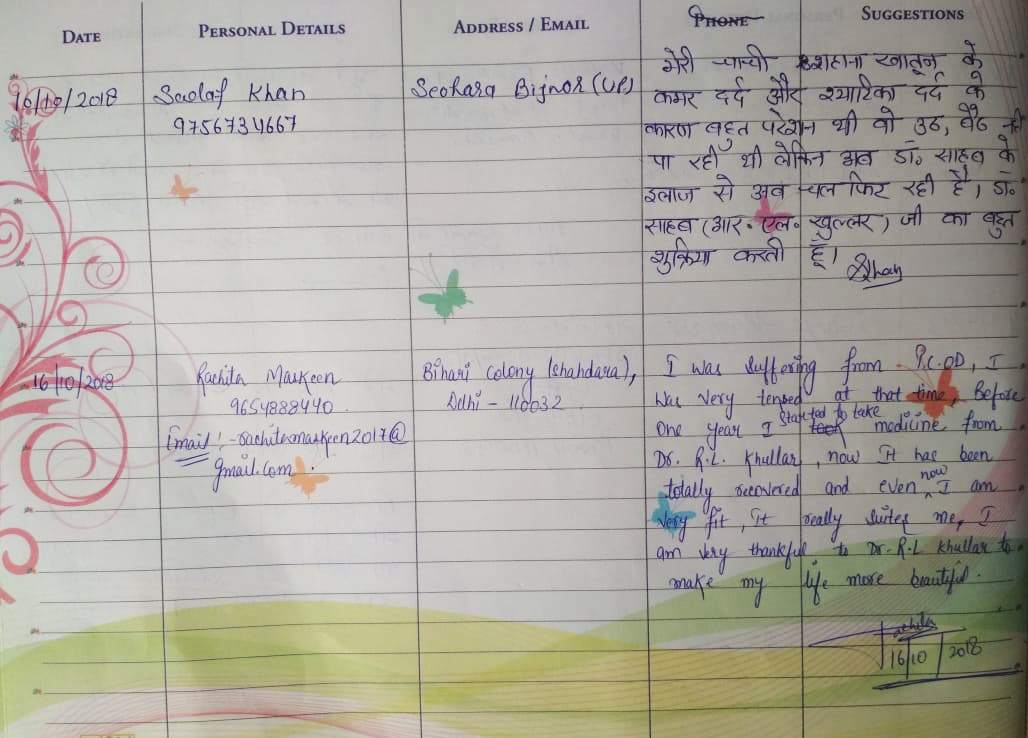 DATE PERSONAL DETAILS ADDRESS / EMAIL PHONE SUGGESTIONS
16/10/2018 Sadaf Khan Seohara Bijnor (UP)
9756734667
मेरी चाची शहाना खातून के
कमर दर्द और श्याटिका दर्द के
कारण बहुत परेशान थी वो उठ, बैठ नही
पा रही थी लेकिन अब डॉ० साहब के
इलाज से अब चल फिर रही है, डॉ०
साहब (आर० एल० खुल्लर) जी का बहुत
शुक्रिया करती हूँ।
16/10/2018 Rachita Maskeen Bihari Colony (shahdara),
9654888440 Delhi - 110032
Email :- rachitamaskeen2017@
gmail.com.
I was suffering from P.C.OD, I
was very tensed at that time, Before
One year I started to take medicine from
Dr. R.L. Khullar, now It has been
totally recovered and even now I am
very fit, it really suites me, I
am very thankful to Dr. R.L Khullar to
make my life more beautiful.
Rachita
16/10/2018